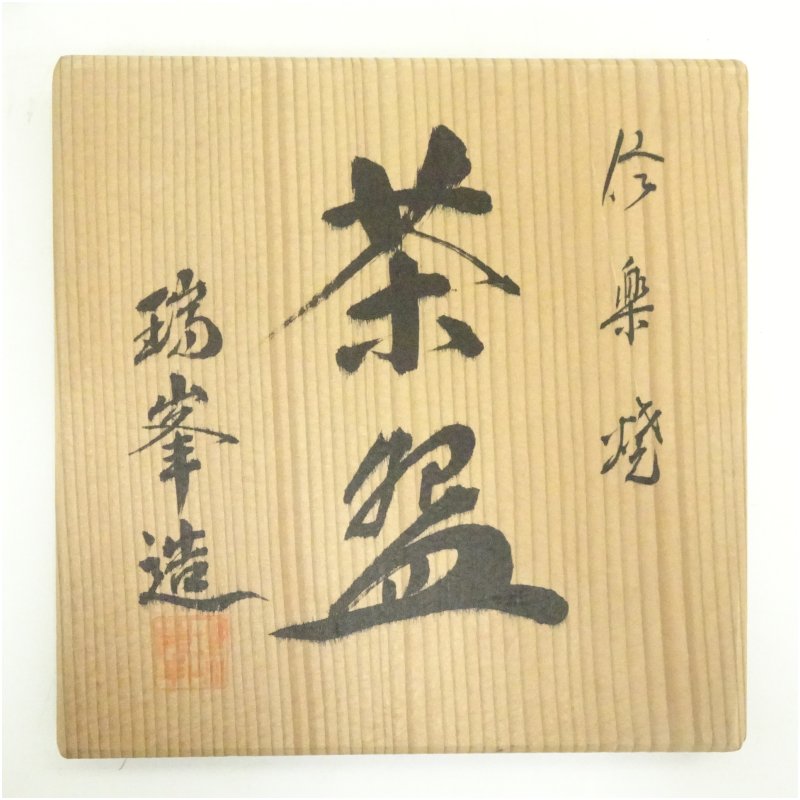 信楽焼
茶盌
瑞峯造